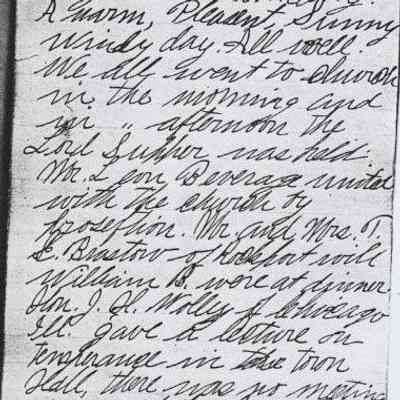 A warm, Pleasant, Sunny
windy day. All well.
We all went to church
in the morning and
in " afternoon the
Lord Supper was held.
Mr. Leon Beverage united
with the church by
profession. Mr. and Mrs. T.
E. Brastow of Rockport with
William B. were at dinner
Hon. J. H. Wolly of Chicago
Ill. gave a lecture on
temperance in the town
Hall, there was no meeting